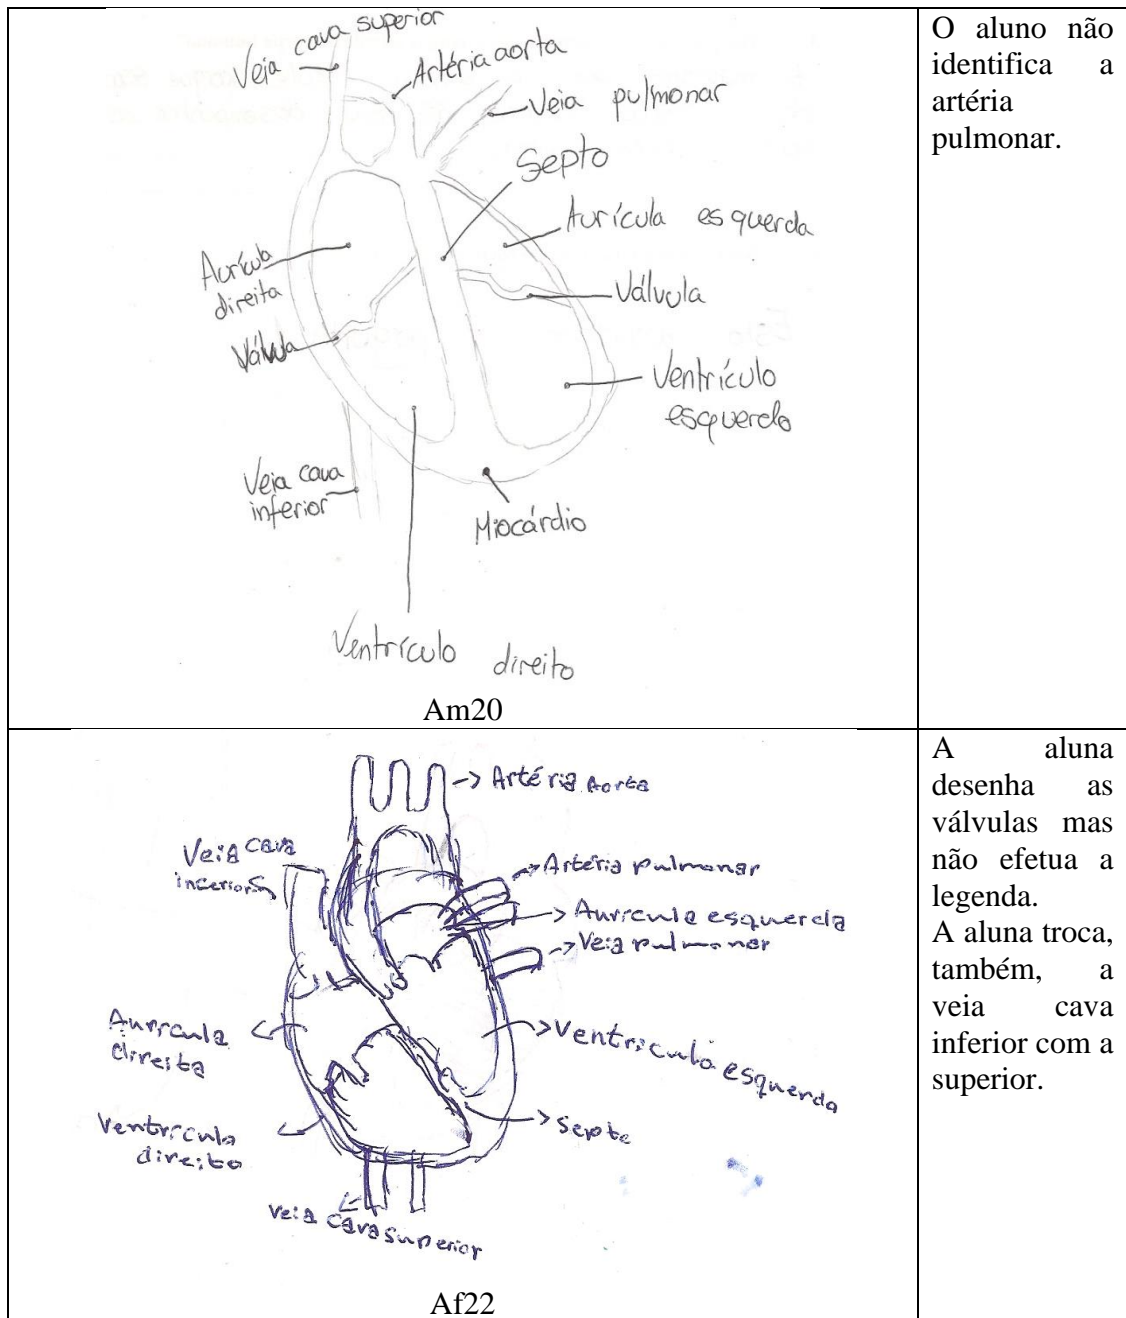 Veia cava superior
Artéria aorta
Veia pulmonar
Septo
Aurícula esquerda
Aurícula
direita
Válvula
Válvula
Ventrículo
esquerdo
Veia cava
inferior
Miocárdio
Ventrículo direito
Am20
O aluno não
identifica a
artéria
pulmonar.
Artéria Aorta
Veia cava
Artéria pulmonar
Aurícula esquerda
Veia pulmonar
Aurícula
direita
Ventriculo esquerda
Ventrículo
direito
Septo
Veia cava superior
Af22
A aluna
desenha as
válvulas mas
não efetua a
legenda.
A aluna troca,
também, a
veia cava
inferior com a
superior.